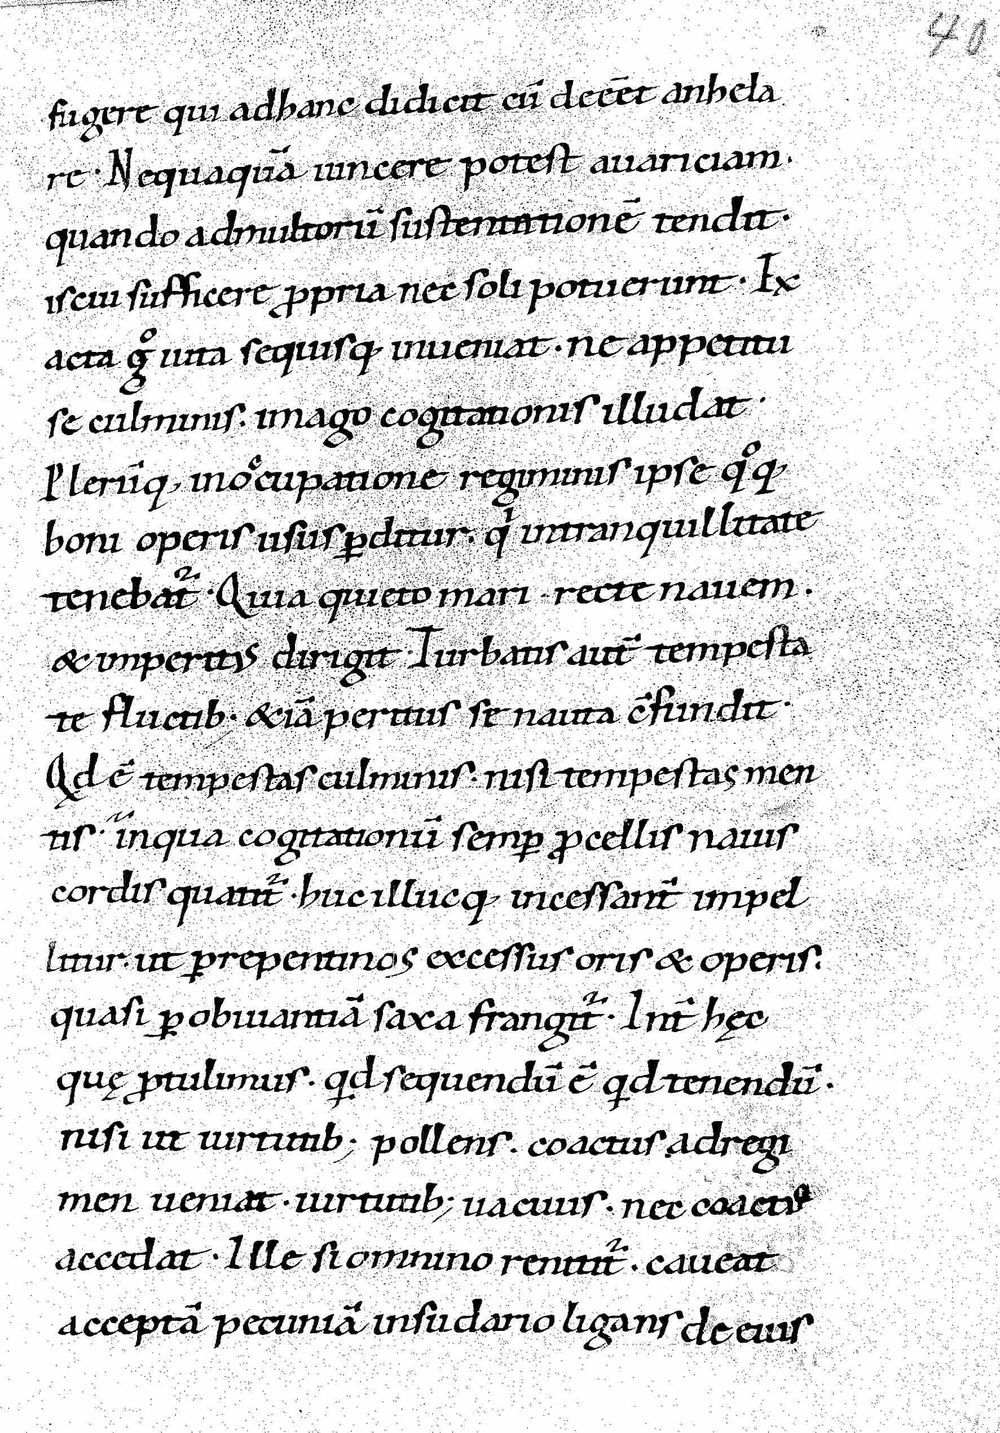 40
fugere qui adhanc didicit cū deeēt anhela
re · Nequaquā uincere potest auariciam ·
quando admultorū sustentationē tendit ·
iscui sufficere ꝓpria nec soli potuerunt · Ex
acta gͦ uita sequisq; inueniat · ne appetitu
se culminis · imago cogitationis illudat ·
Plerūq; inoccupatione regiminis ipse qͦq;
boni operis usus ꝑditur · qͥ intranquillitate
tenebat᷑ · Quia quieto mari · recte nauem ·
& imperitus dirigit · Turbatis aut̄ tempesta
te fluctib· &iā peritus se nauta c̄fundit ·
Qd ē tempestas culminis · nisi tempestas men
tis · inqua cogitationū semꝑ ꝓcellis nauis
cordis quatit᷑ · huc illucq; incessant̄ impel
litur · ut ꝑrepentinos excessus oris & operis ·
quasi ꝑ obuiantiā saxa frangit᷑ · Int̄ hęc
quę ꝓtulimus · qd sequendū ē qd tenendū ·
nisi ut uirtutib; pollens · coactus adregi
men ueniat · uirtutib; uacuus · nec coactꝰ
accedat · Ille si omnino renitit᷑ · caueat
acceptā pecuniā insudario ligans de eius